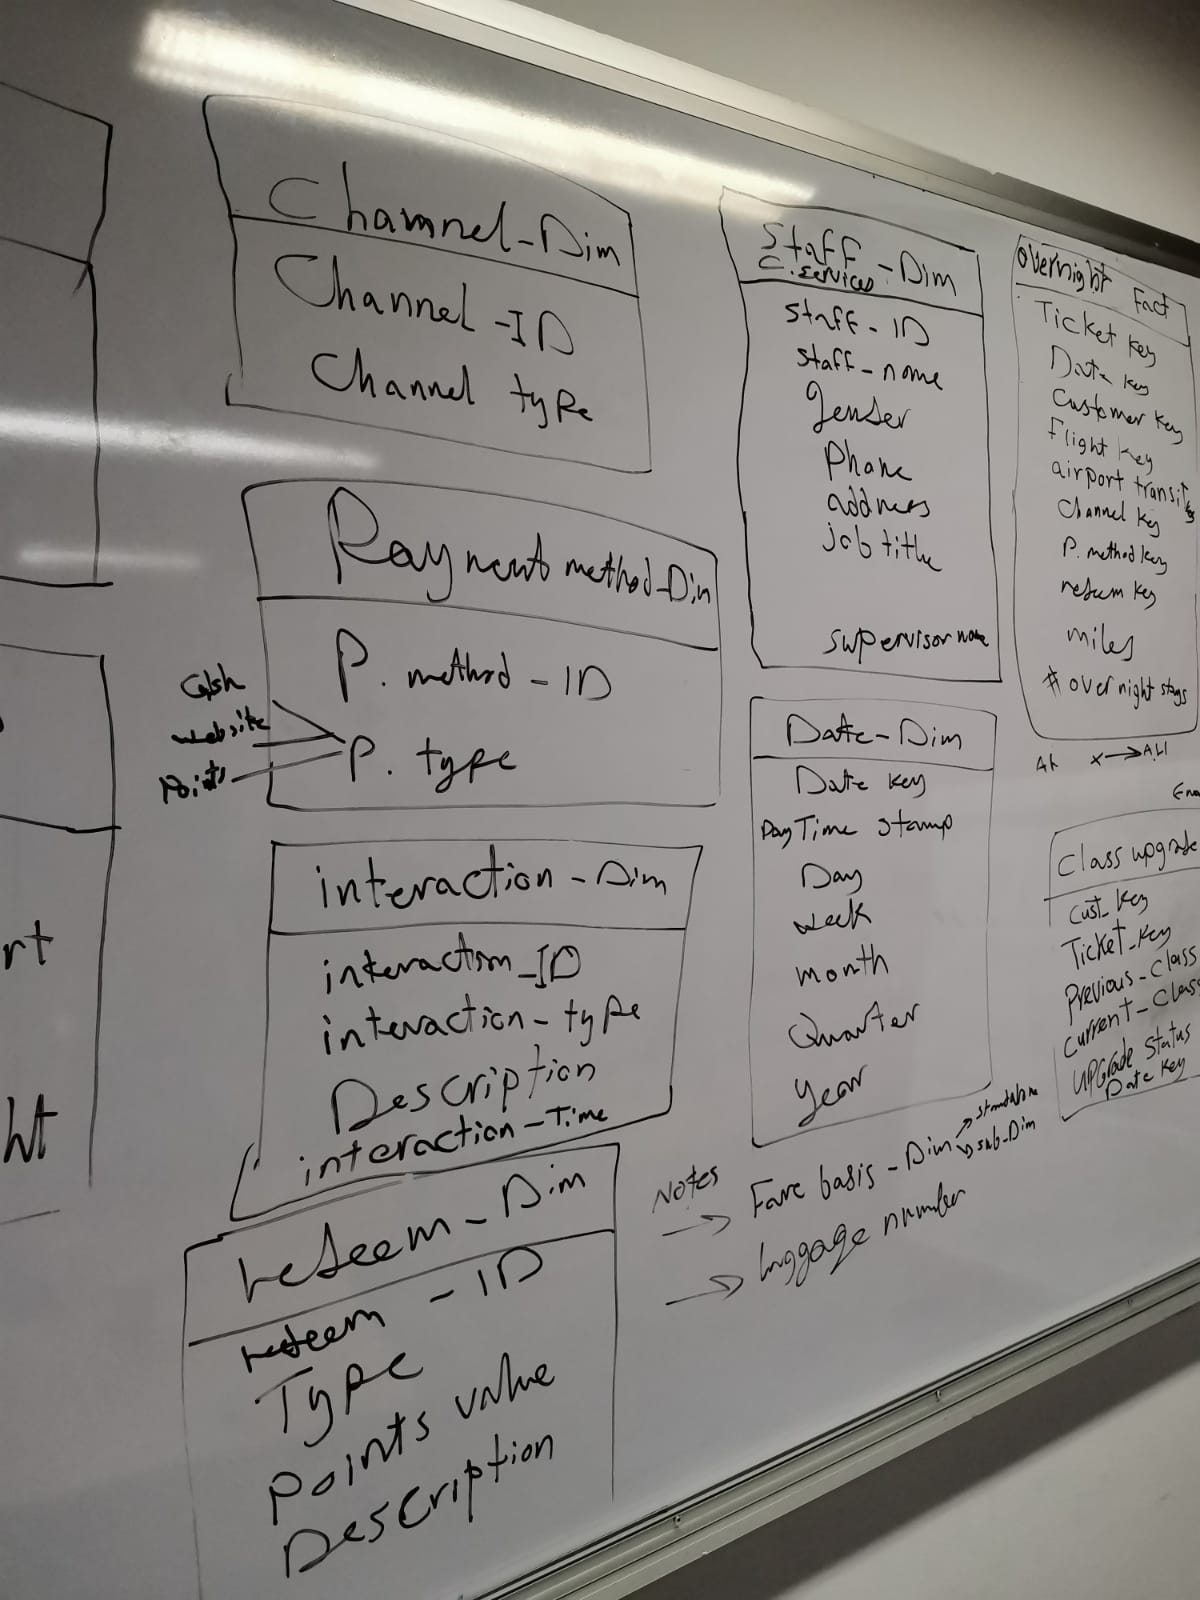 Channel-Dim
Channel-ID
Channel type
Payment method-Dim
P. method-ID
P. type
Cash
website
Points
interaction-Dim
interaction_ID
interaction-type
Description
interaction-Time
redeem-Dim
redeem-ID
Type
Points value
Description
Staff-Dim
C. services
Staff-ID
Staff-name
gender
Phone
address
job title
supervisor name
Date-Dim
Date key
Day Time stamp
Day
week
month
Quarter
year
Notes
→ Fare basis-Dim
standalone
sub-Dim
→ luggage number
overnight Fact
Ticket key
Date key
Customer key
Flight key
airport transit
Channel key
P. method key
redeem key
miles
# overnight stays
x → ALI
Class upgrade
Cust_key
Ticket_key
Previous-Class
Current-Class
UPGrade Status
Date key
rt
ht